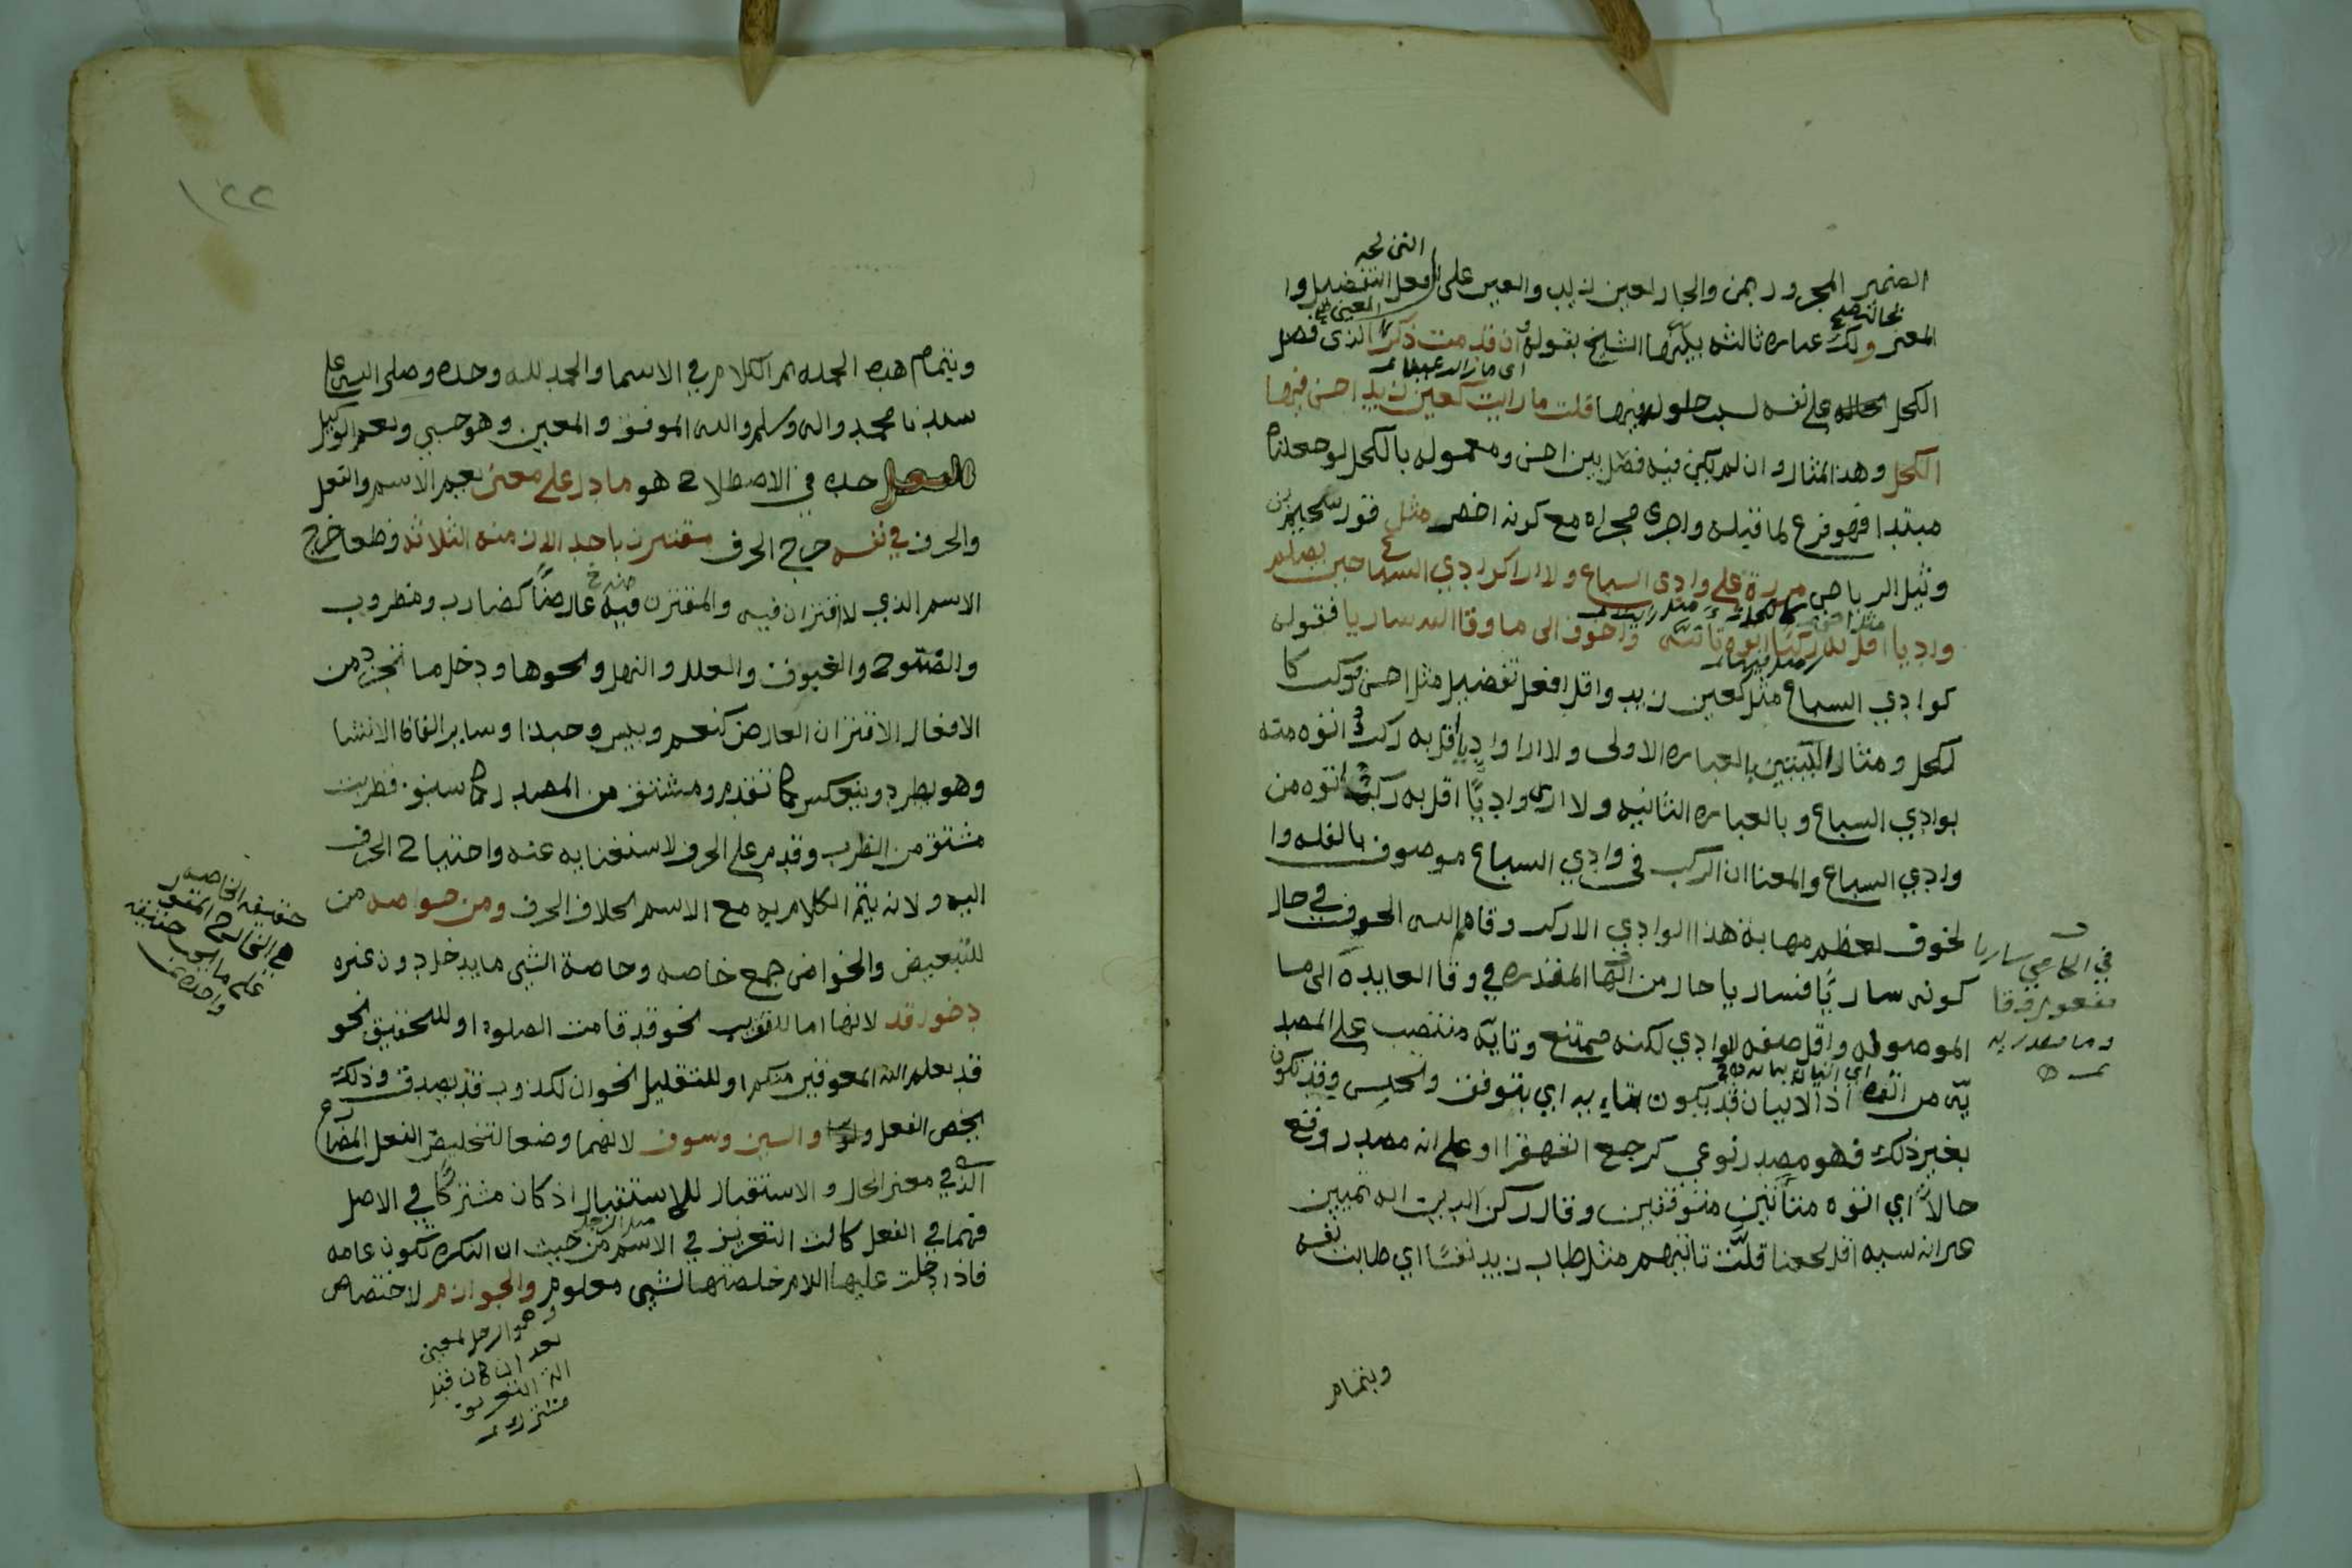 الضمير المجرور بمن والجار لعين زيد والعين على افعل التفضيل وا
المعنى ولك عباره ثالثه يبينها الشيخ بقوله وان قدمت ذكر الذي فضل
الكحل على نفسه لسبب حلوله فيها قلت ما رايت كعين زيد احسن فيها
الكحل وهذا المثال وان لم يكن فيه فصل بين احسن ومعموله بالكحل لو جعلناه
مبتدا فهو فرع لما قبله واجرى مجراه مع كونه اخصر مثل قول سحيم بن
وثيل الرياحي مررة على وادى السباع ولا ارا كوادي السباع حين يظلم
واديا اقل به ركب اتوه تأيّة واخوف الى ما وقا الله ساريا فقوله
كوادي السباع مثل كعين زيد واقل افعل تفضيل مثل احسن وركب كا
لكحل ومثال البيتين بالعباره الاولى ولا ارا واديا اقل به ركب اتوه منه
بوادي السباع وبالعباره الثانيه ولا ارى واديًا اقل به ركب اتوه من
وادي السباع والمعنا ان الركب في وادي السباع موصوف بالقله وا
لخوف لعظم مهابة هذا الوادي الا ركب وقاهم الله الخوف في حال
كونه ساريًا فساريا حال من الها المقدره في وقا العايدة الى ما
الموصوله واقل صفه لوادي لكنه ممتنع وتايّة منتصب على المصد
يّه من اتوه اذ الاتيان قد يكون بتايه اي بتوقف وتحبس وقد يكون
بغير ذلك فهو مصدر نوعي كرجع القهقرا او على انه مصدر وقع
حالاً اي اتوه متأنين متوقفين وقال ركن الدين انه تمييز
عن نسبه اقل لمعنا قلّت تانيهم مثل طاب زيد نفسًا اي طابت نفسه
وبتمام
في الحامي ساريا
مفعول وقا
وما مصدريه
وبتمام هذه الجمله تم الكلام في الاسما والحمد لله وحده وصلى الله على
سيدنا محمد واله وسلم والله الموفق والمعين وهو حسبي ونعم الوكيل
الفعل حده في الاصطلاح هو ما دل على معنى يعم الاسم والفعل
والحرف في نفسه خرج الحرف مقترن باحد الازمنه الثلاثه قطعا خرج
الاسم الذي لا اقتران فيه والمقترن فيه عارضًا كضارب ومضروب
والصبوح والغبوق والعلل والنهل ونحوها ودخل ما تجرد من
الافعال الاقتران العارض كنعم وبيس وحبذا وساير الفاظ الانشا
وهو يطرد وينعكس كما تقدم ومشتق من المصدر كما سبق فضربت
مشتق من الضرب وقدم على الحرف لاستغنايه عنه واحتياج الحرف
اليه ولانه يتم الكلام به مع الاسم بخلاف الحرف ومن خواصه من
للتبعيض والخواص جمع خاصه وخاصة الشي ما يدخل دون غيره
دخول قد لانها اما للتقريب نحو قد قامت الصلوة او للتحقيق نحو
قد يعلم الله المعوقين منكم او للتقليل نحو ان الكذوب قد يصدق وذلك
يخص الفعل والسين وسوف لانهما وضعا لتخليص الفعل المضارع
الذي في معنى الحال والاستقبال للاستقبال اذ كان مشتركًا في الاصل
فهما في الفعل كالت التعريف في الاسم من حيث ان النكره تكون عامه
فاذا دخلت عليها اللام خلصتها لشي معلوم والجوازم لاختصاص
وهو الرجل لمعين
بعد ان كان قبل
الة التعريف
مشترك
١٢٢